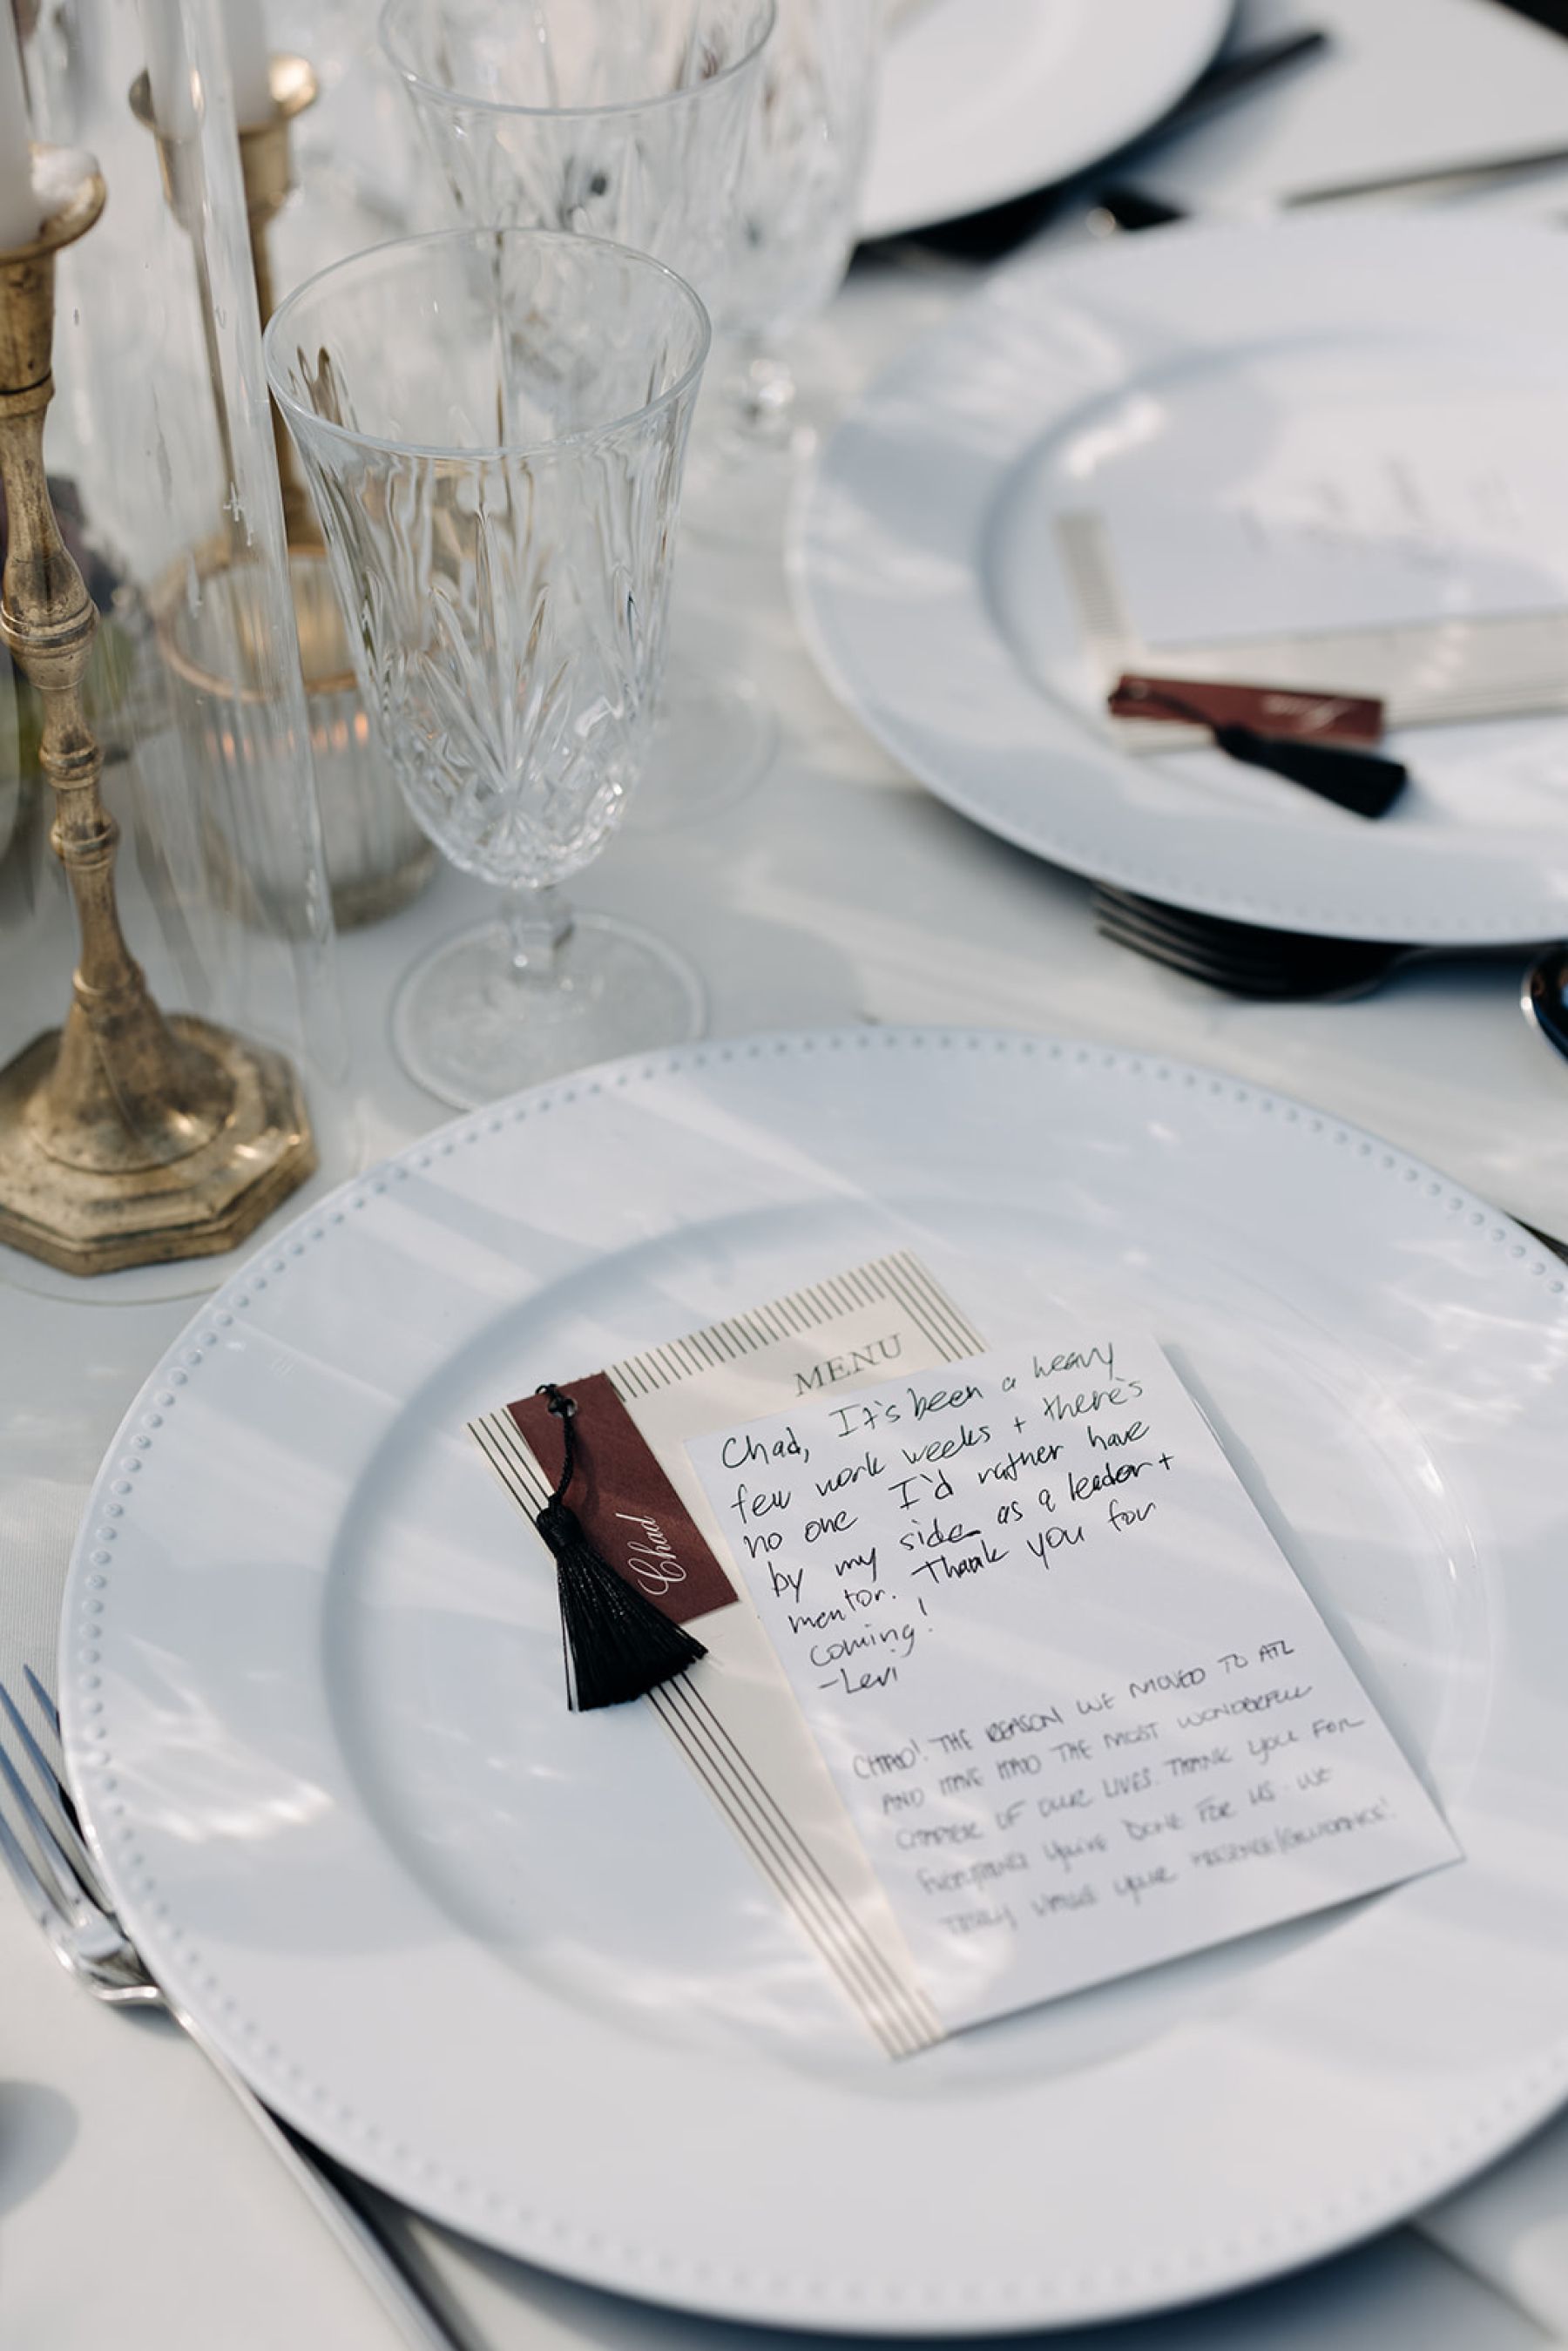 MENU
Chad
Chad, It's been a heavy
few work weeks + there's
no one I'd rather have
by my side as a leader +
mentor. Thank you for
coming!
-Levi
CHAD! THE REASON WE MOVED TO ATL
AND HAVE HAD THE MOST WONDERFUL
CHAPTER OF OUR LIVES. THANK YOU FOR
EVERYTHING YOU'VE DONE FOR US. WE
TRULY VALUE YOUR PRESENCE/GUIDANCE!